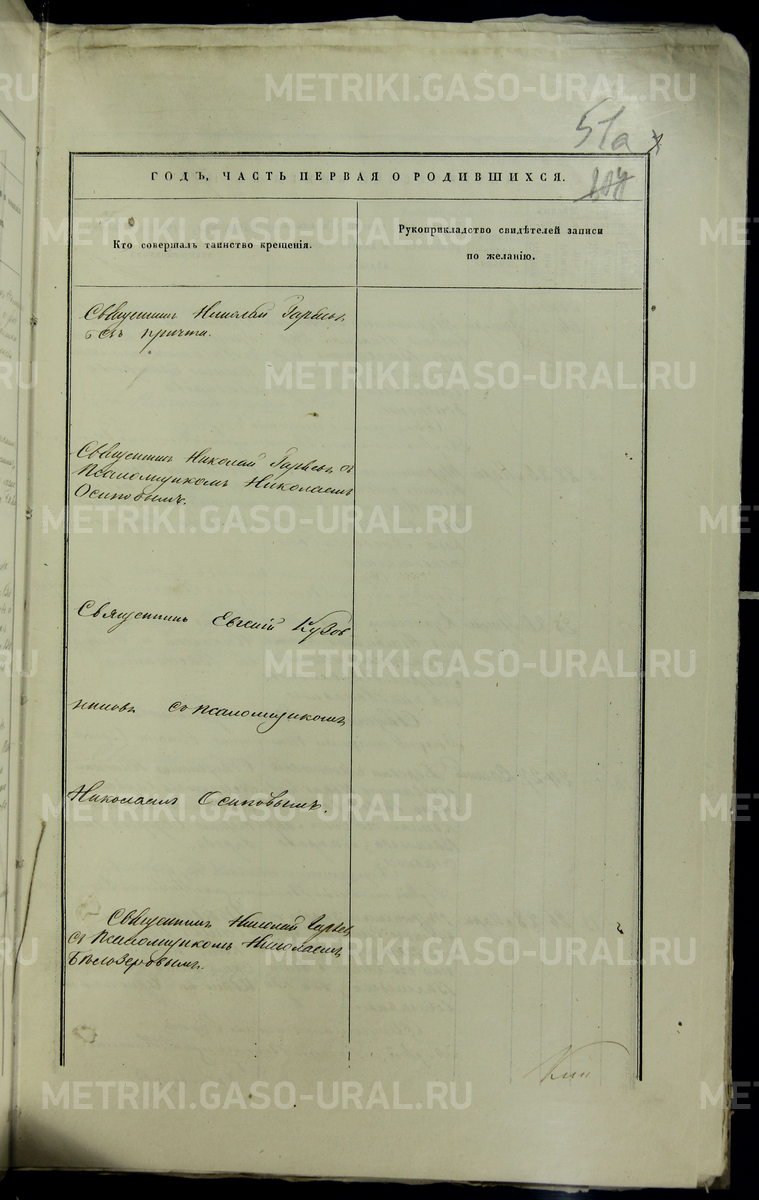 51а
ГОДЪ, ЧАСТЬ ПЕРВАЯ О РОДИВШИХСЯ.
Кто совершалъ таинство крещенія.
Рукоприкладство свидѣтелей записи
по желанію.
Священникъ Николай
причта.
Священникъ Николай
Псаломщикомъ Николаемъ
Осиповымъ.
Священникъ Евгеній Кузов
никовъ съ псаломщикомъ
Николаемъ Осиповымъ.
Священникъ Николай
съ Псаломщикомъ Николаемъ
Бѣлозеровымъ.
METRIKI.GASO-URAL.RU